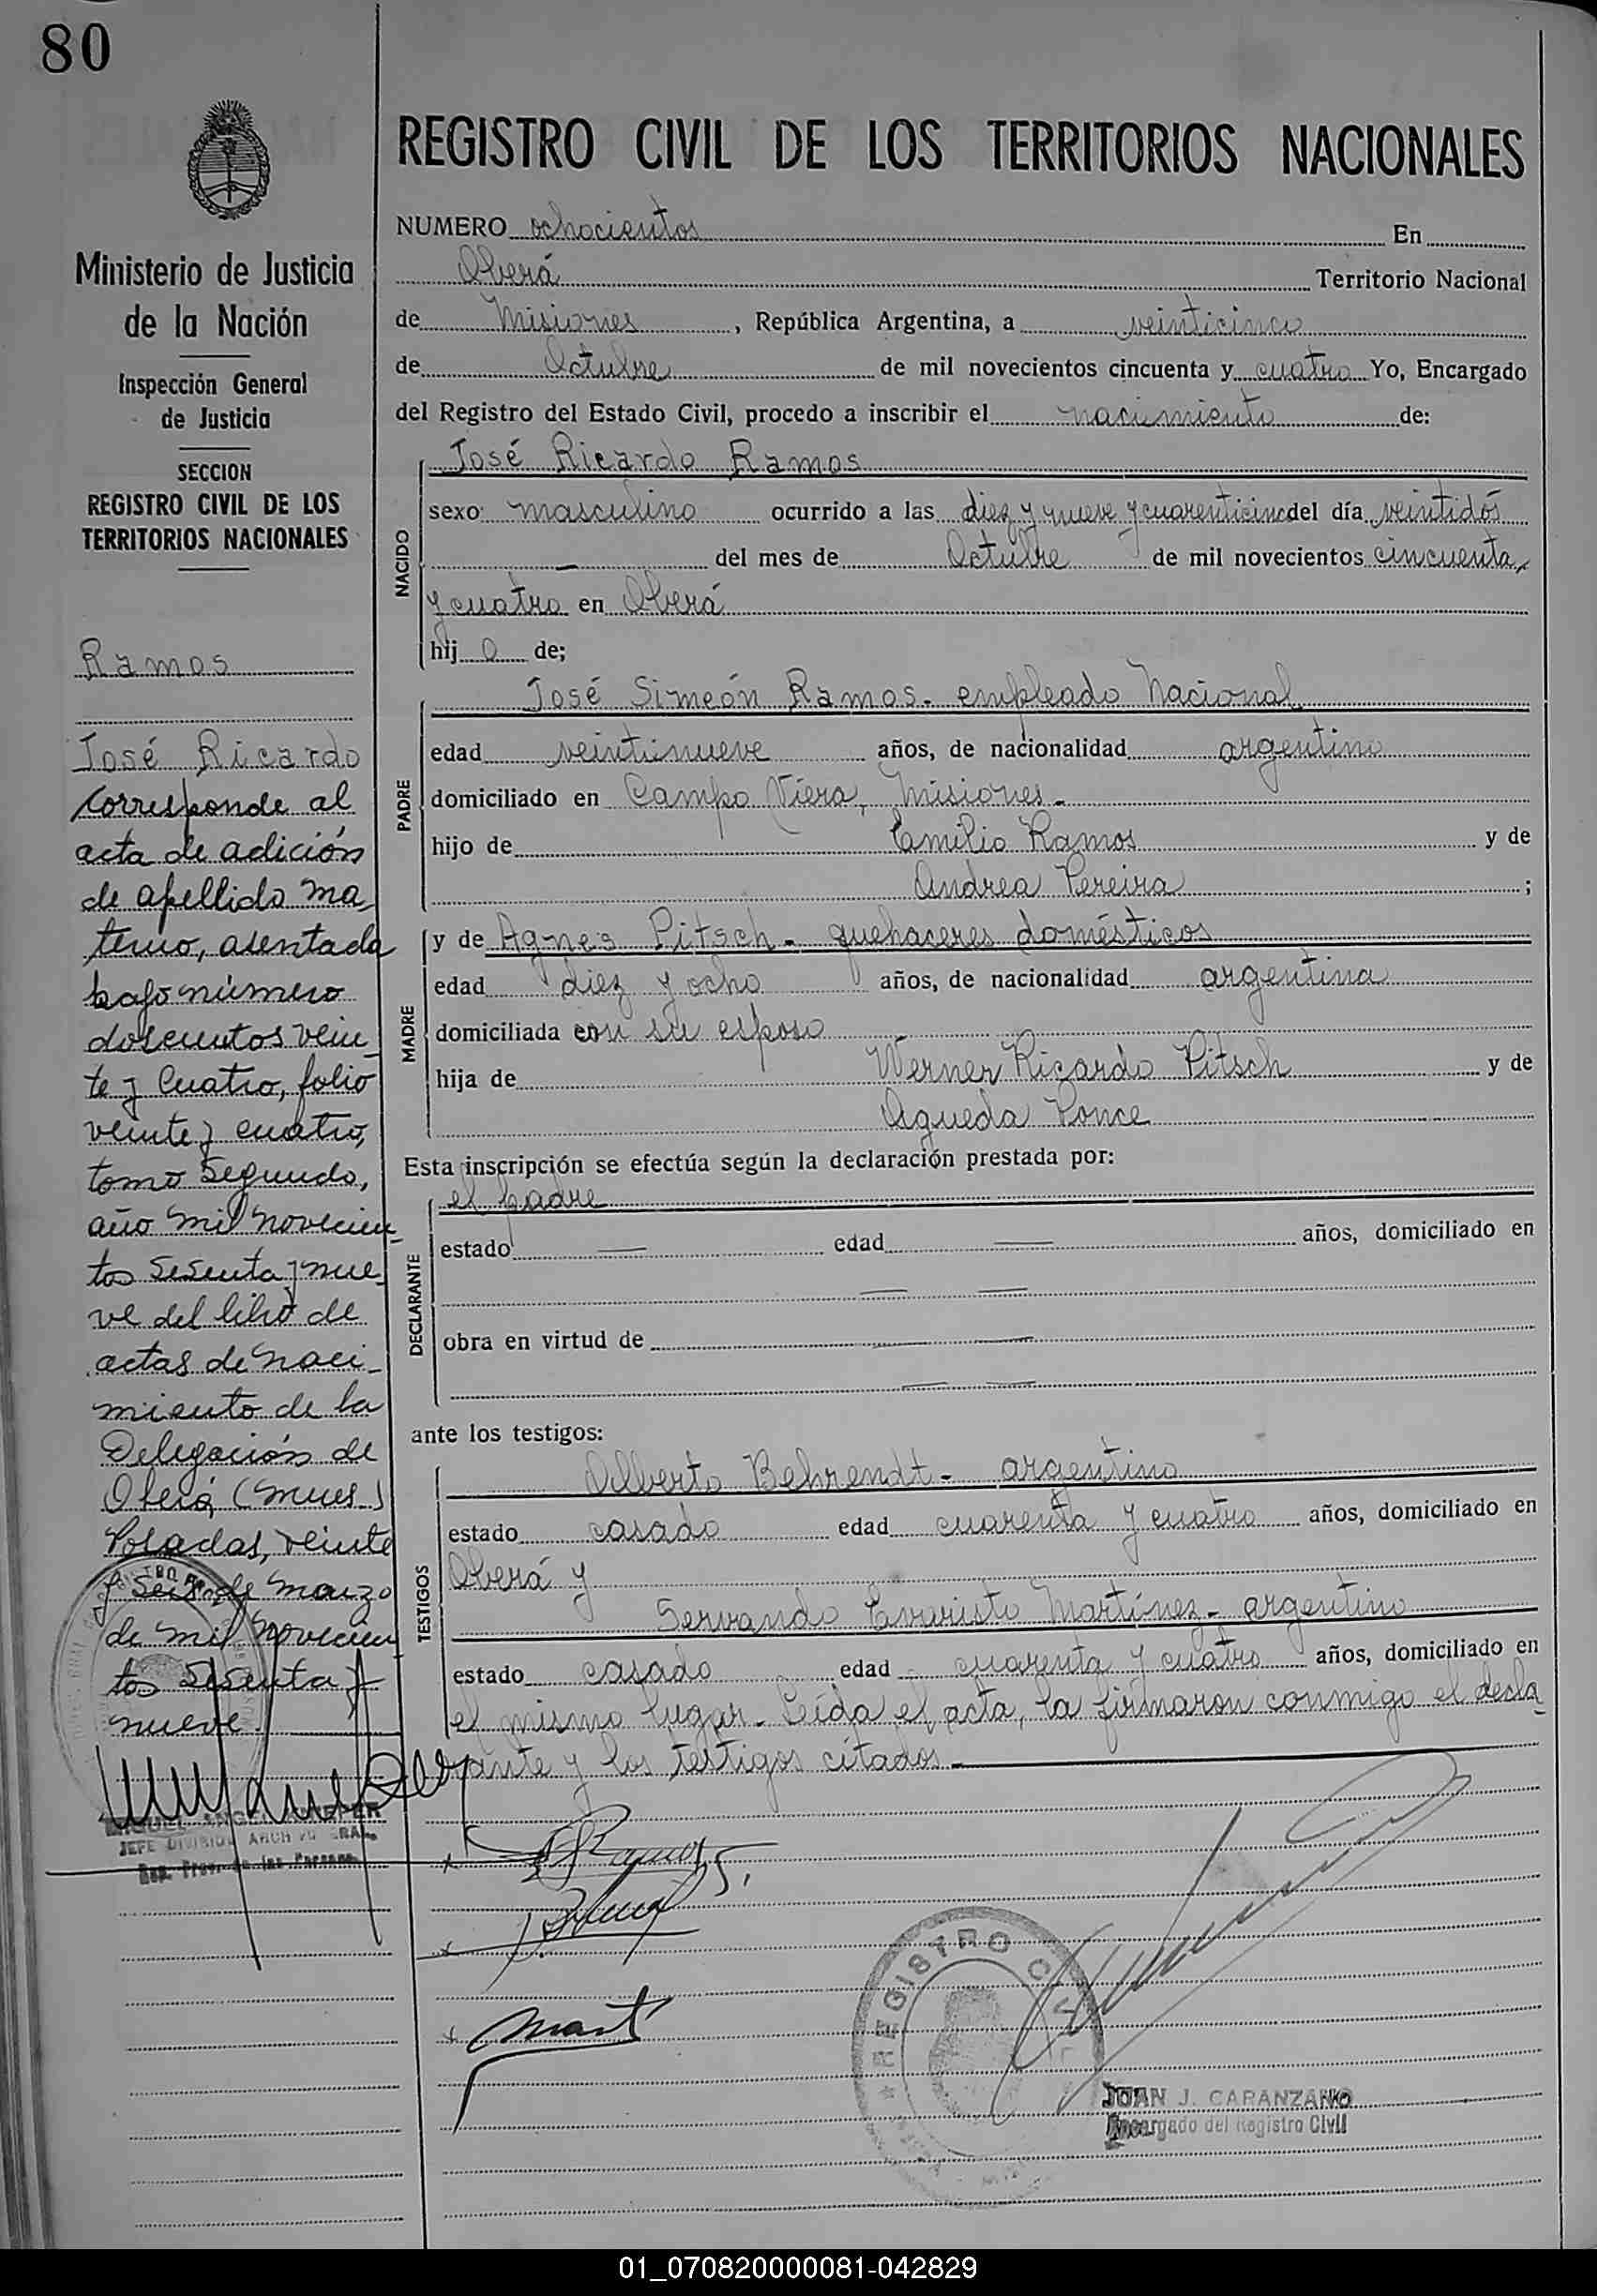 80
REGISTRO CIVIL DE LOS TERRITORIOS NACIONALES
Ministerio de Justicia
de la Nación
Inspección General
de Justicia
SECCION
REGISTRO CIVIL DE LOS
TERRITORIOS NACIONALES
Ramos
José Ricardo
Corresponde al
acta de adición
de apellido ma
terno, asentada
bajo número
doscientos vein
te y cuatro, folio
veinte y cuatro,
tomo segundo,
año mil novecien
tos sesenta y nue
ve del libro de
actas de naci-
miento de la
Delegación de
Oberá (mnes.)
Posadas, veinte
y seis de marzo
de mil novecien
tos sesenta y
nueve.
MIGUEL ANGEL
JEFE DIVISION ARCHIVO GRAL.
NUMERO ochocientos En
Oberá Territorio Nacional
de Misiones, República Argentina, a veinticinco
de Octubre de mil novecientos cincuenta y cuatro Yo, Encargado
del Registro del Estado Civil, procedo a inscribir el nacimiento de:
NACIDO
José Ricardo Ramos
sexo masculino ocurrido a las diez y nueve y cuarenticinco del día veintidós
— del mes de Octubre de mil novecientos cincuenta
y cuatro en Oberá
hij o de;
PADRE
José Simeón Ramos - empleado Nacional
edad veintinueve años, de nacionalidad argentino
domiciliado en Campo Viera, Misiones -
hijo de Emilio Ramos y de
Andrea Pereira ;
MADRE
y de Agnes Pitsch - quehaceres domésticos
edad diez y ocho años, de nacionalidad argentina
domiciliada con su esposo
hija de Werner Ricardo Pitsch y de
Agueda Ponce
Esta inscripción se efectúa según la declaración prestada por:
DECLARANTE
el padre
estado — edad — años, domiciliado en
— —
obra en virtud de — —
— —
ante los testigos:
TESTIGOS
Alberto Behrendt - argentino
estado casado edad cuarenta y cuatro años, domiciliado en
Oberá y
Servando Evaristo Martínez - argentino
estado casado edad cuarenta y cuatro años, domiciliado en
el mismo lugar - Leída el acta, la firmaron conmigo el decla-
rante y los testigos citados -
REGISTRO
JUAN J. CARANZANO
Encargado del Registro Civil
01_070820000081-042829